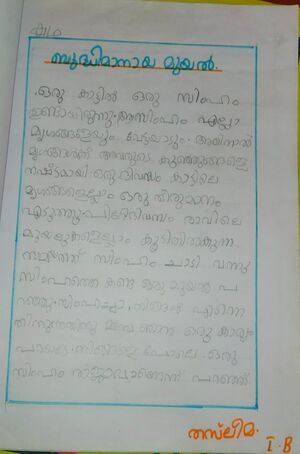 കഥ
ബുദ്ധിമാനായ മുയൽ.
ഒരു കാട്ടിൽ ഒരു സിംഹം
ഉണ്ടായിരുന്നു. ആസിംഹം എല്ലാ
മൃഗങ്ങളേയും വേട്ടയാടും. അതിനാൽ
മൃഗങ്ങൾക്ക് അവരുടെ കുഞ്ഞുങ്ങളെ
നഷ്ടമായി. ഒരു ദിവസം കാട്ടിലെ
മൃഗങ്ങളെല്ലാം ഒരു തീരുമാനം
എടുത്തു. പിറ്റേദിവസം രാവിലെ
മുയലുകളെല്ലാം കൂടിനിൽകുന്ന
സമയത്ത് സിംഹം ചാടി വന്നു
സിംഹത്തെ കണ്ട ഒരു മുയൽ പ
റഞ്ഞു. നിങ്ങൾ എന്നെ
തിന്നുന്നതിനു മുമ്പ് ഞാൻ ഒരു കാര്യം
പറയട്ടെ. നിങ്ങളെ പോലെ ഒരു
സിംഹം രാജാവാണെന്ന് പറഞ്ഞ്
തസ്ലീമ.
I.B